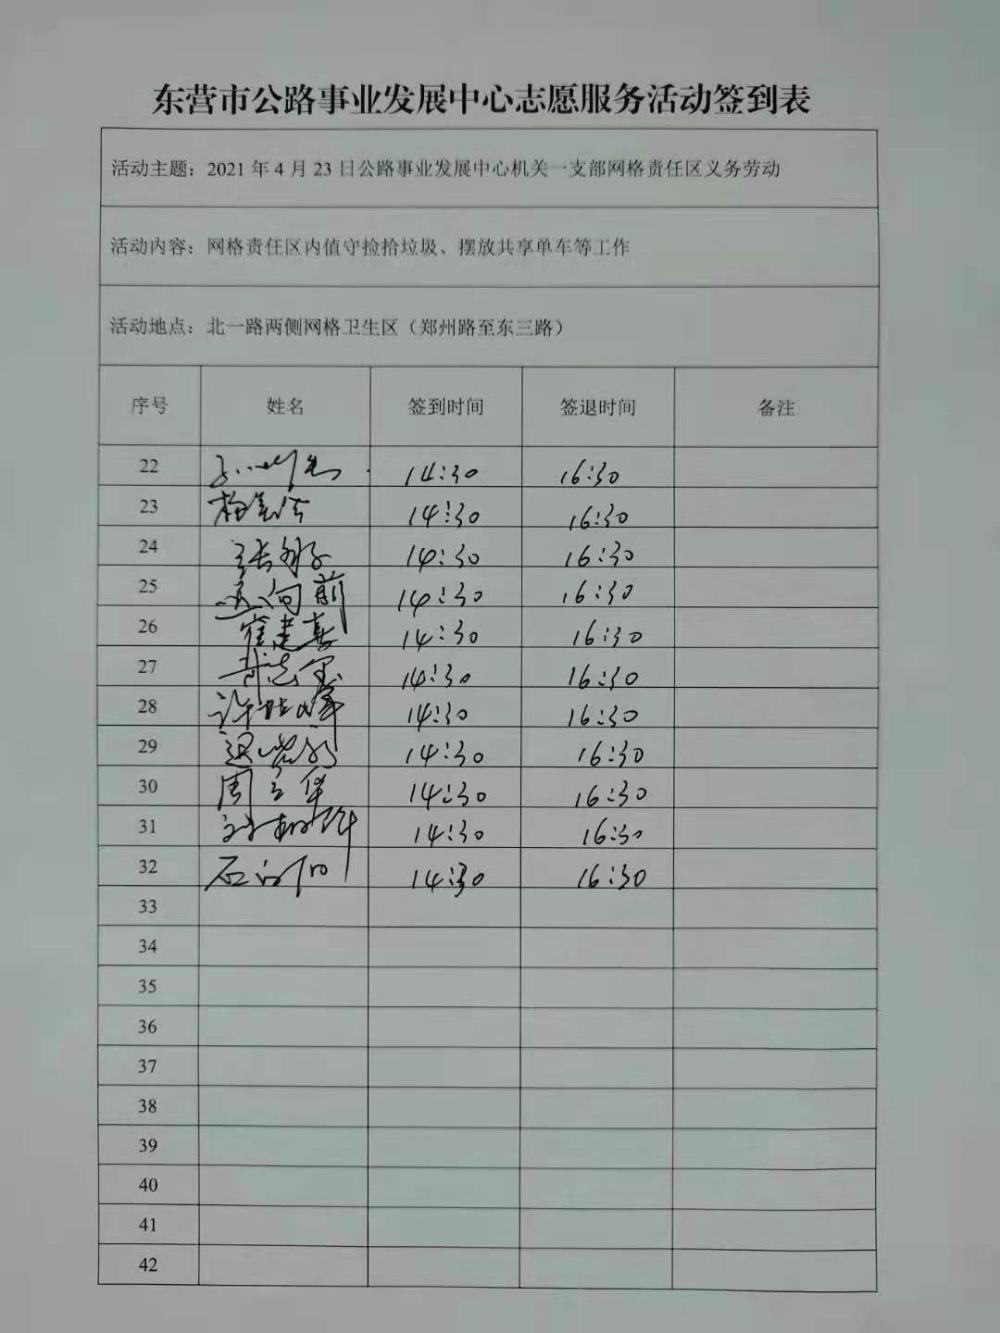 东营市公路事业发展中心志愿服务活动签到表
活动主题：2021 年 4 月 23 日公路事业发展中心机关一支部网格责任区义务劳动
活动内容：网格责任区内值守捡拾垃圾、摆放共享单车等工作
活动地点：北一路两侧网格卫生区（郑州路至东三路）
序号 姓名 签到时间 签退时间 备注
22 14:30 16:30
23 14:30 16:30
24 14:30 16:30
25 向前 14:30 16:30
26 崔建喜 14:30 16:30
27 14:30 16:30
28 14:30 16:30
29 14:30 16:30
30 周立华 14:30 16:30
31 14:30 16:30
32 14:30 16:30
33
34
35
36
37
38
39
40
41
42